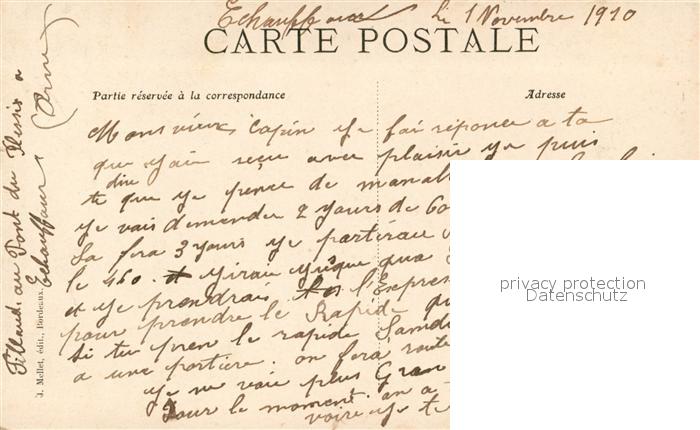 Echauffour Le 1 Novembre 1910
CARTE POSTALE
Partie réservée à la correspondance
Adresse
Mons vieux Copin ye fai réponce a ta
que y'aie reçue avec plaisir ye puis
te dire que ye pence de man all
ye vais demender 2 yours de 60
Sa fera 3 yours ye partirau
le 460. et yirau yusque qua
et ye prendrais l'Expres
pour prendre le Rapide
Si tu pren le rapide Samdi
a une portière. on fera route
ye ne vaie plus Gran
Pour le moment. an a-
voire ye te
Filland au Pont du Plessis a
Echauffour
(Orne)
J. Mellet, édit., Bordeaux
privacy protection
Datenschutz